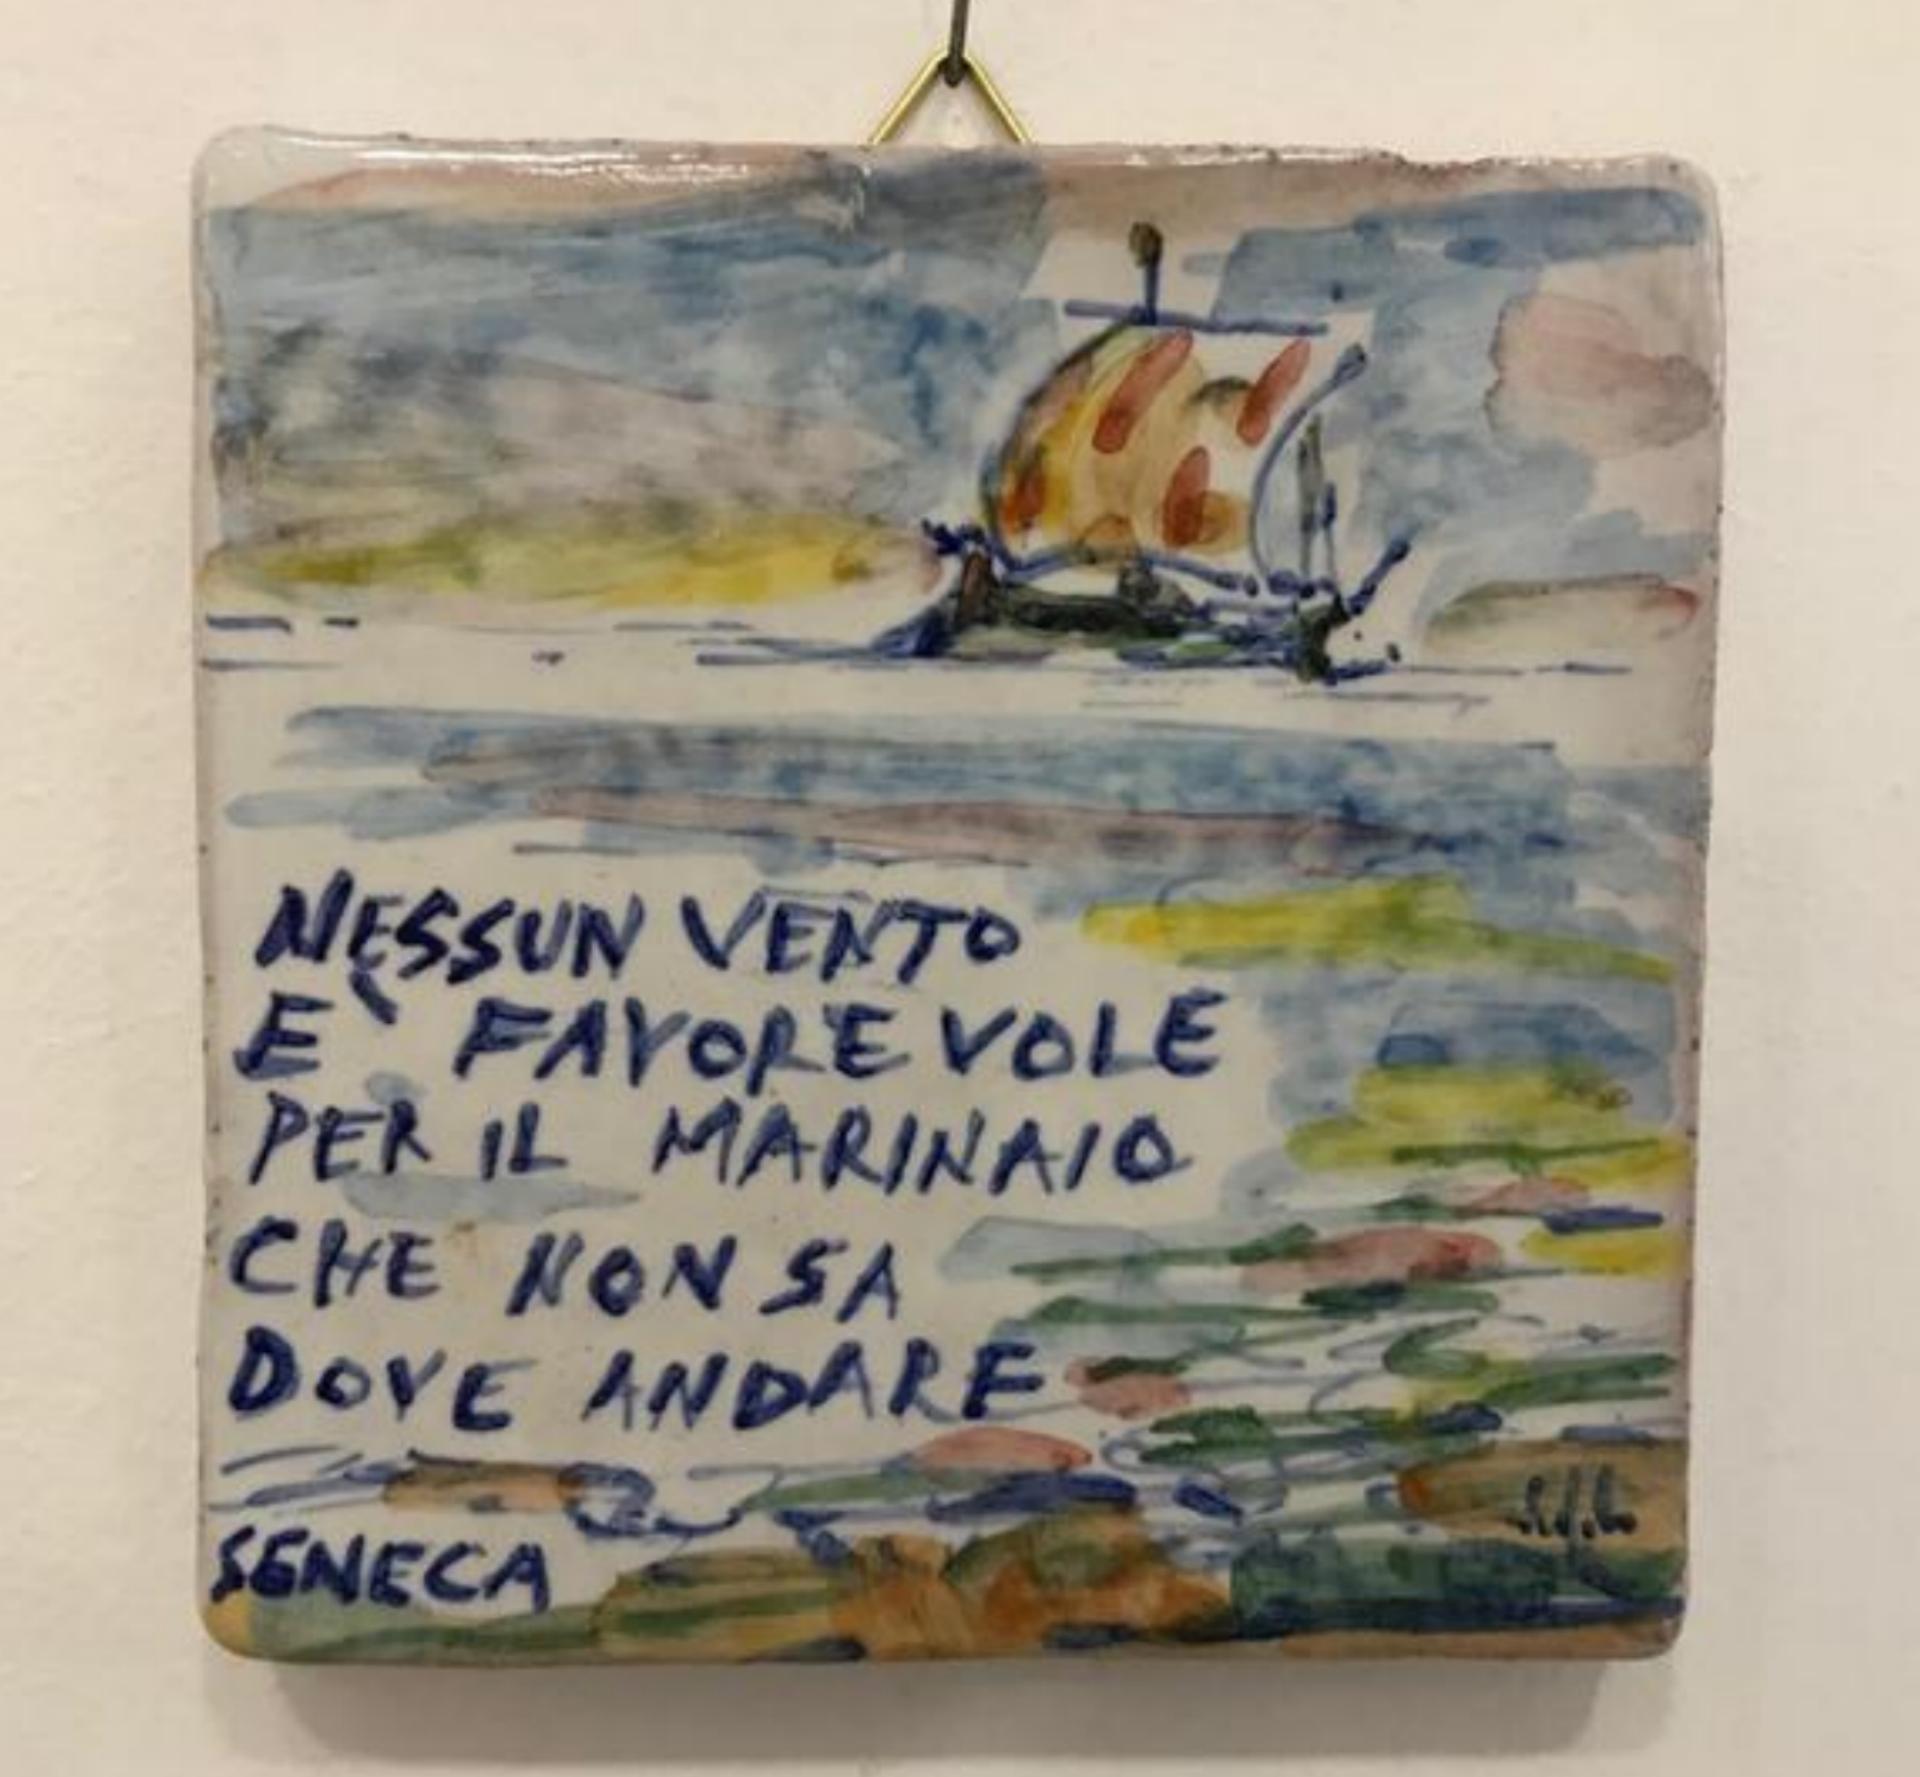 NESSUN VENTO
E` FAVOREVOLE
PER IL MARINAIO
CHE NON SA
DOVE ANDARE
SENECA